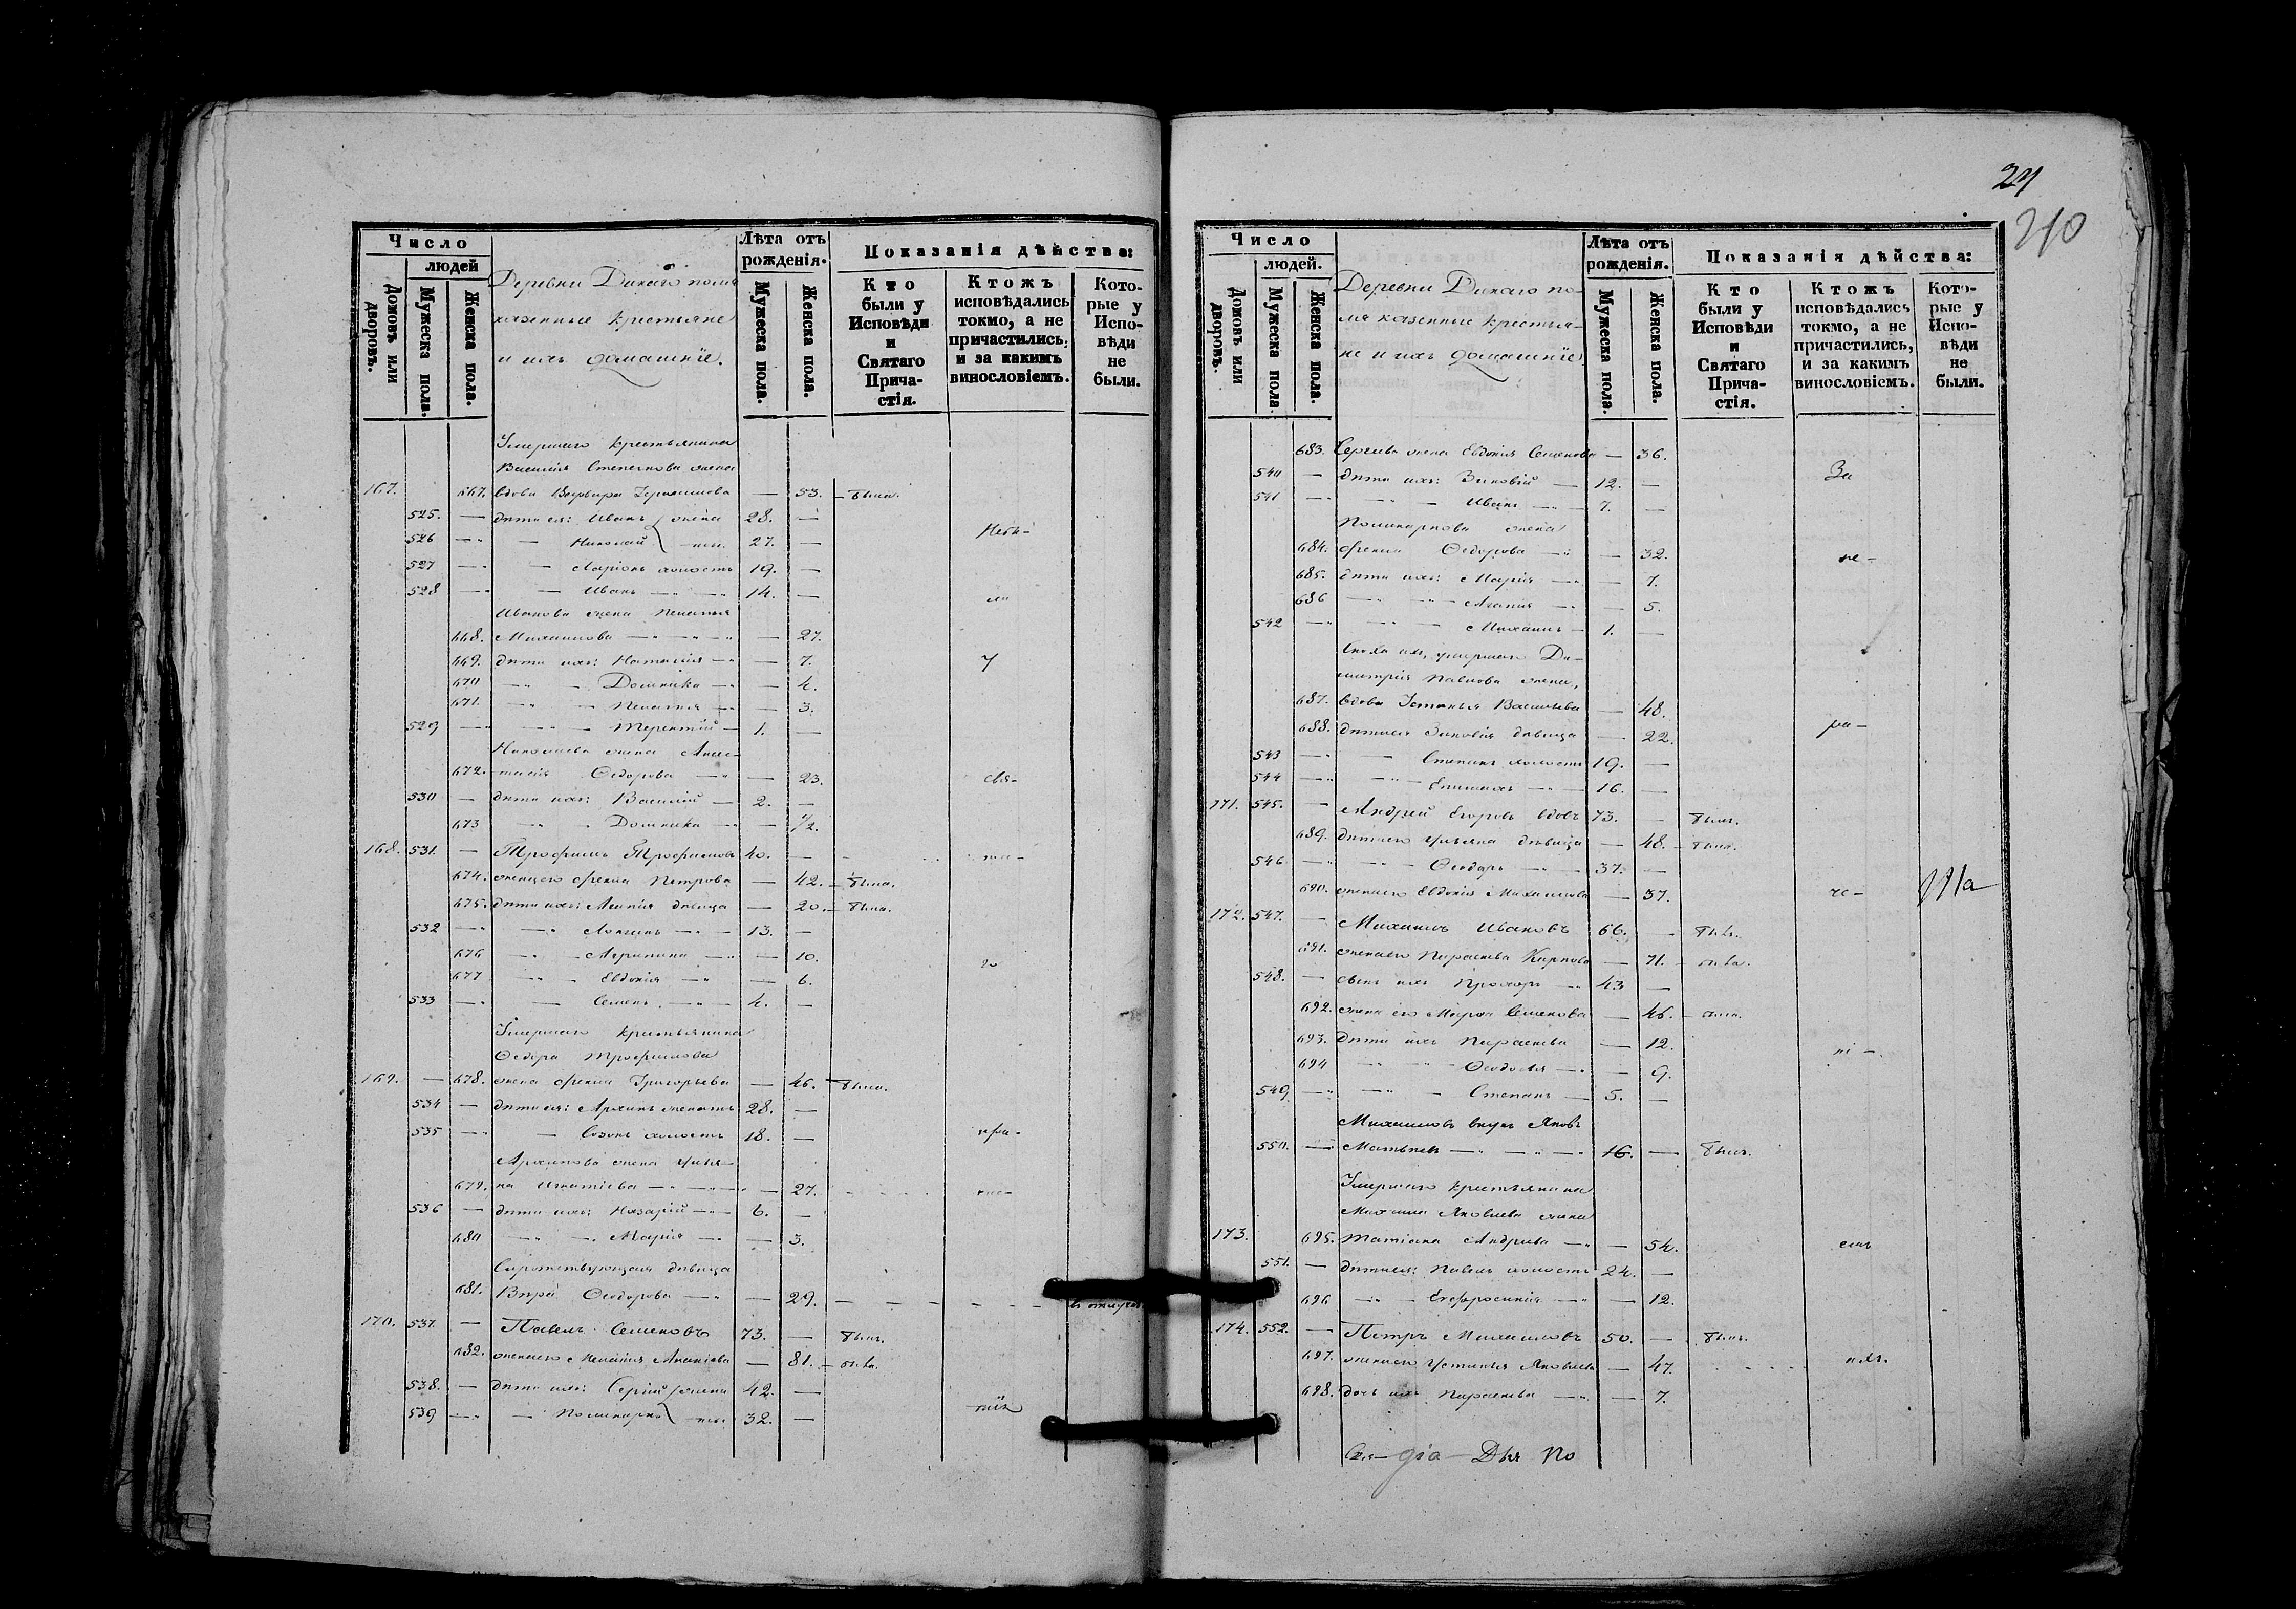 Число
людей
Домовъ или дворовъ.
Мужеска пола.
Женска пола.
Деревни Дикаго поля
казенные крестьяне
и ихъ домашніе.
Лѣта отъ
рожденія.
Мужеска пола.
Женска пола.
Показанія дѣйства:
Кто
были у
Исповѣди
и
Святаго
Прича-
стія.
Ктожъ
исповѣдались
токмо, а не
причастились,
и за какимъ
винословіемъ.
Кото-
рые у
Испо-
вѣди
не
были.
Умершаго крестьянина
Василія Степанова жена
167. 667. вдова Варвара Герасимова — 53. — была.
525. — дѣти ея: Иванъ 28. —
526 — Николай 27. — Небы-
527 — Ларіонъ холостъ 19. —
528 — Иванъ 14. — ли
Иванова жена Пелагія
668. Михаилова — 27.
669. дѣти ихъ: Наталія — 7. у
670 — Домника — 4.
671. — Пелагія — 3.
529 — Терентій — 1. —
Николаева жена Анас-
672. тасія Ѳедорова — 23. свя-
530 — дѣти ихъ: Василій — 2. —
673 — Домника — 1/2.
168. 531. — Трофимъ Трофимовъ 40. —
674. жена его Ѳекла Петрова — 42. — была.
675. дѣти ихъ: девица — 20. — была.
532 — Логинъ — 13. —
676 — Агрипина — 10. го
677 — Евдокія — 6.
533 — Семенъ — 4. —
Умершаго крестьянина
Ѳедора Трофимова
169. — 678. жена Ѳекла Григорьева — 46. — была.
534 — дѣти ея: Архипъ женатъ 28. —
535 — Созонъ холостъ 18. — при-
Архипова жена Улья-
679. на Игнатіева — 27.
536 — дѣти ихъ: Назарій — 6. —
680 — Марія — 3.
Сиротствующая девица
681. Вѣра Ѳедорова — 29.
170. 537. — Павелъ Семеновъ 73. — былъ.
682. жена его Меланія — 81. — была.
538. — дѣти ихъ: Сергій 42. —
539 — Поликарпъ 32. — тія
24
210
Число
людей.
Домовъ или дворовъ.
Мужеска пола.
Женска пола.
Деревни Дикаго по-
ля казенные крестья-
не и ихъ домашніе
Лѣта отъ
рожденія.
Мужеска пола.
Женска пола.
Показанія дѣйства:
Кто
были у
Исповѣди
и
Святаго
Прича-
стія.
Ктожъ
исповѣдались
токмо, а не
причастились,
и за какимъ
винословіемъ.
Кото-
рые у
Испо-
вѣди
не
были.
683. Сергѣева жена Евдокія Семенова — 36.
540 — дѣти ихъ: Зиновій — 12. — За
541 — Иванъ — 7. —
Поликарпова жена
684. Ѳекла Ѳедорова — 32. не-
685. дѣти ихъ: Марія — 7.
686 — Агапія — 5.
542 — Михаилъ — 1. —
Сноха ихъ, умершаго Ди-
митрія Павлова жена,
687. вдова Устинья Васильева — 48.
688. дѣти ея Зиновія девица — 22. ра-
543 — Степанъ холостъ 19. —
544 — 16. —
171. 545. — Андрей Егоровъ вдовъ 73. — былъ.
689. дѣти его Ульяна девица — 48. — была.
546 — Ѳеодоръ — 37. —
690. жена его Евдокія Михаилова — 37. че-
172. 547. — Михаилъ Ивановъ 66. — былъ.
691. жена его Параскева Карпова — 71. — была.
548. — сынъ ихъ Прохоръ — 43 —
692. жена его Марѳа Семенова — 46. — была.
693. дѣти ихъ Параскева — 12. ні-
694 — Ѳеодосія — 9.
549 — Степанъ — 5. —
Михаиловъ внукъ Яковъ
550. — Матвеевъ — 16. — былъ.
Умершаго крестьянина
Михаила Яковлева жена
173. 695. Татіана Андреева — 54. емъ
551. — дѣти ея: Павелъ холостъ 24. —
696 — Евфросинія — 12.
174. 552. — Петръ Михаиловъ 50. — былъ.
697. жена его Устинья Яковлева — 47. ихъ.
698. дочь ихъ Параскева — 7.